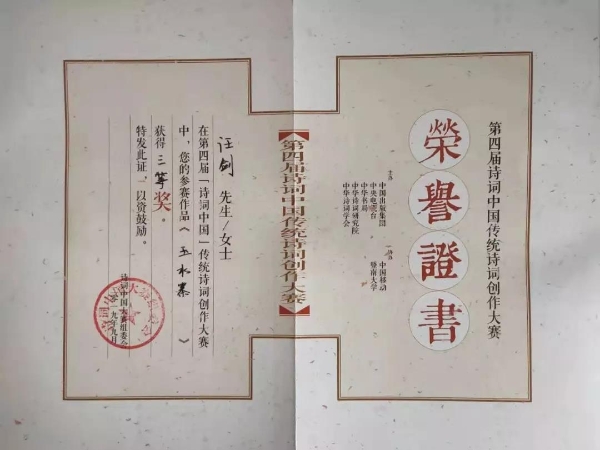 第四届诗词中国传统诗词创作大赛
榮譽證書
主办
中国出版集团
中央电视台
中华书局
中华诗词研究院
中华诗词学会
协办
中国移动
暨南大学
【第四届诗词中国传统诗词创作大赛】
汪剑 先生/女士
在第四届「诗词中国」传统诗词创作大赛
中,您的参赛作品《玉水寨》
获得三等奖。
特发此证,以资鼓励。
诗词中国大赛组委会
二〇一九年九月